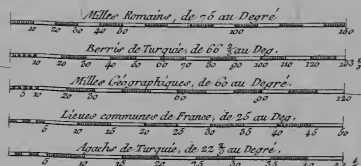 Milles Romains, de 75 au Degré
10 20 30 40 50 100 150
Berris de Turquie, de 66 2/3 au Deg.
10 20 30 40 50 60 70 80 90 100 110 120 133 1/3
Mille Géographiques, de 60 au Degré.
5 10 20 30 60 90 120
Lieues communes de France, de 25 au Deg.
5 10 15 20 25 30 35 40 45 50
Agachs de Turquie, de 22 2/3 au Degré.
5 10 15 20 25 30